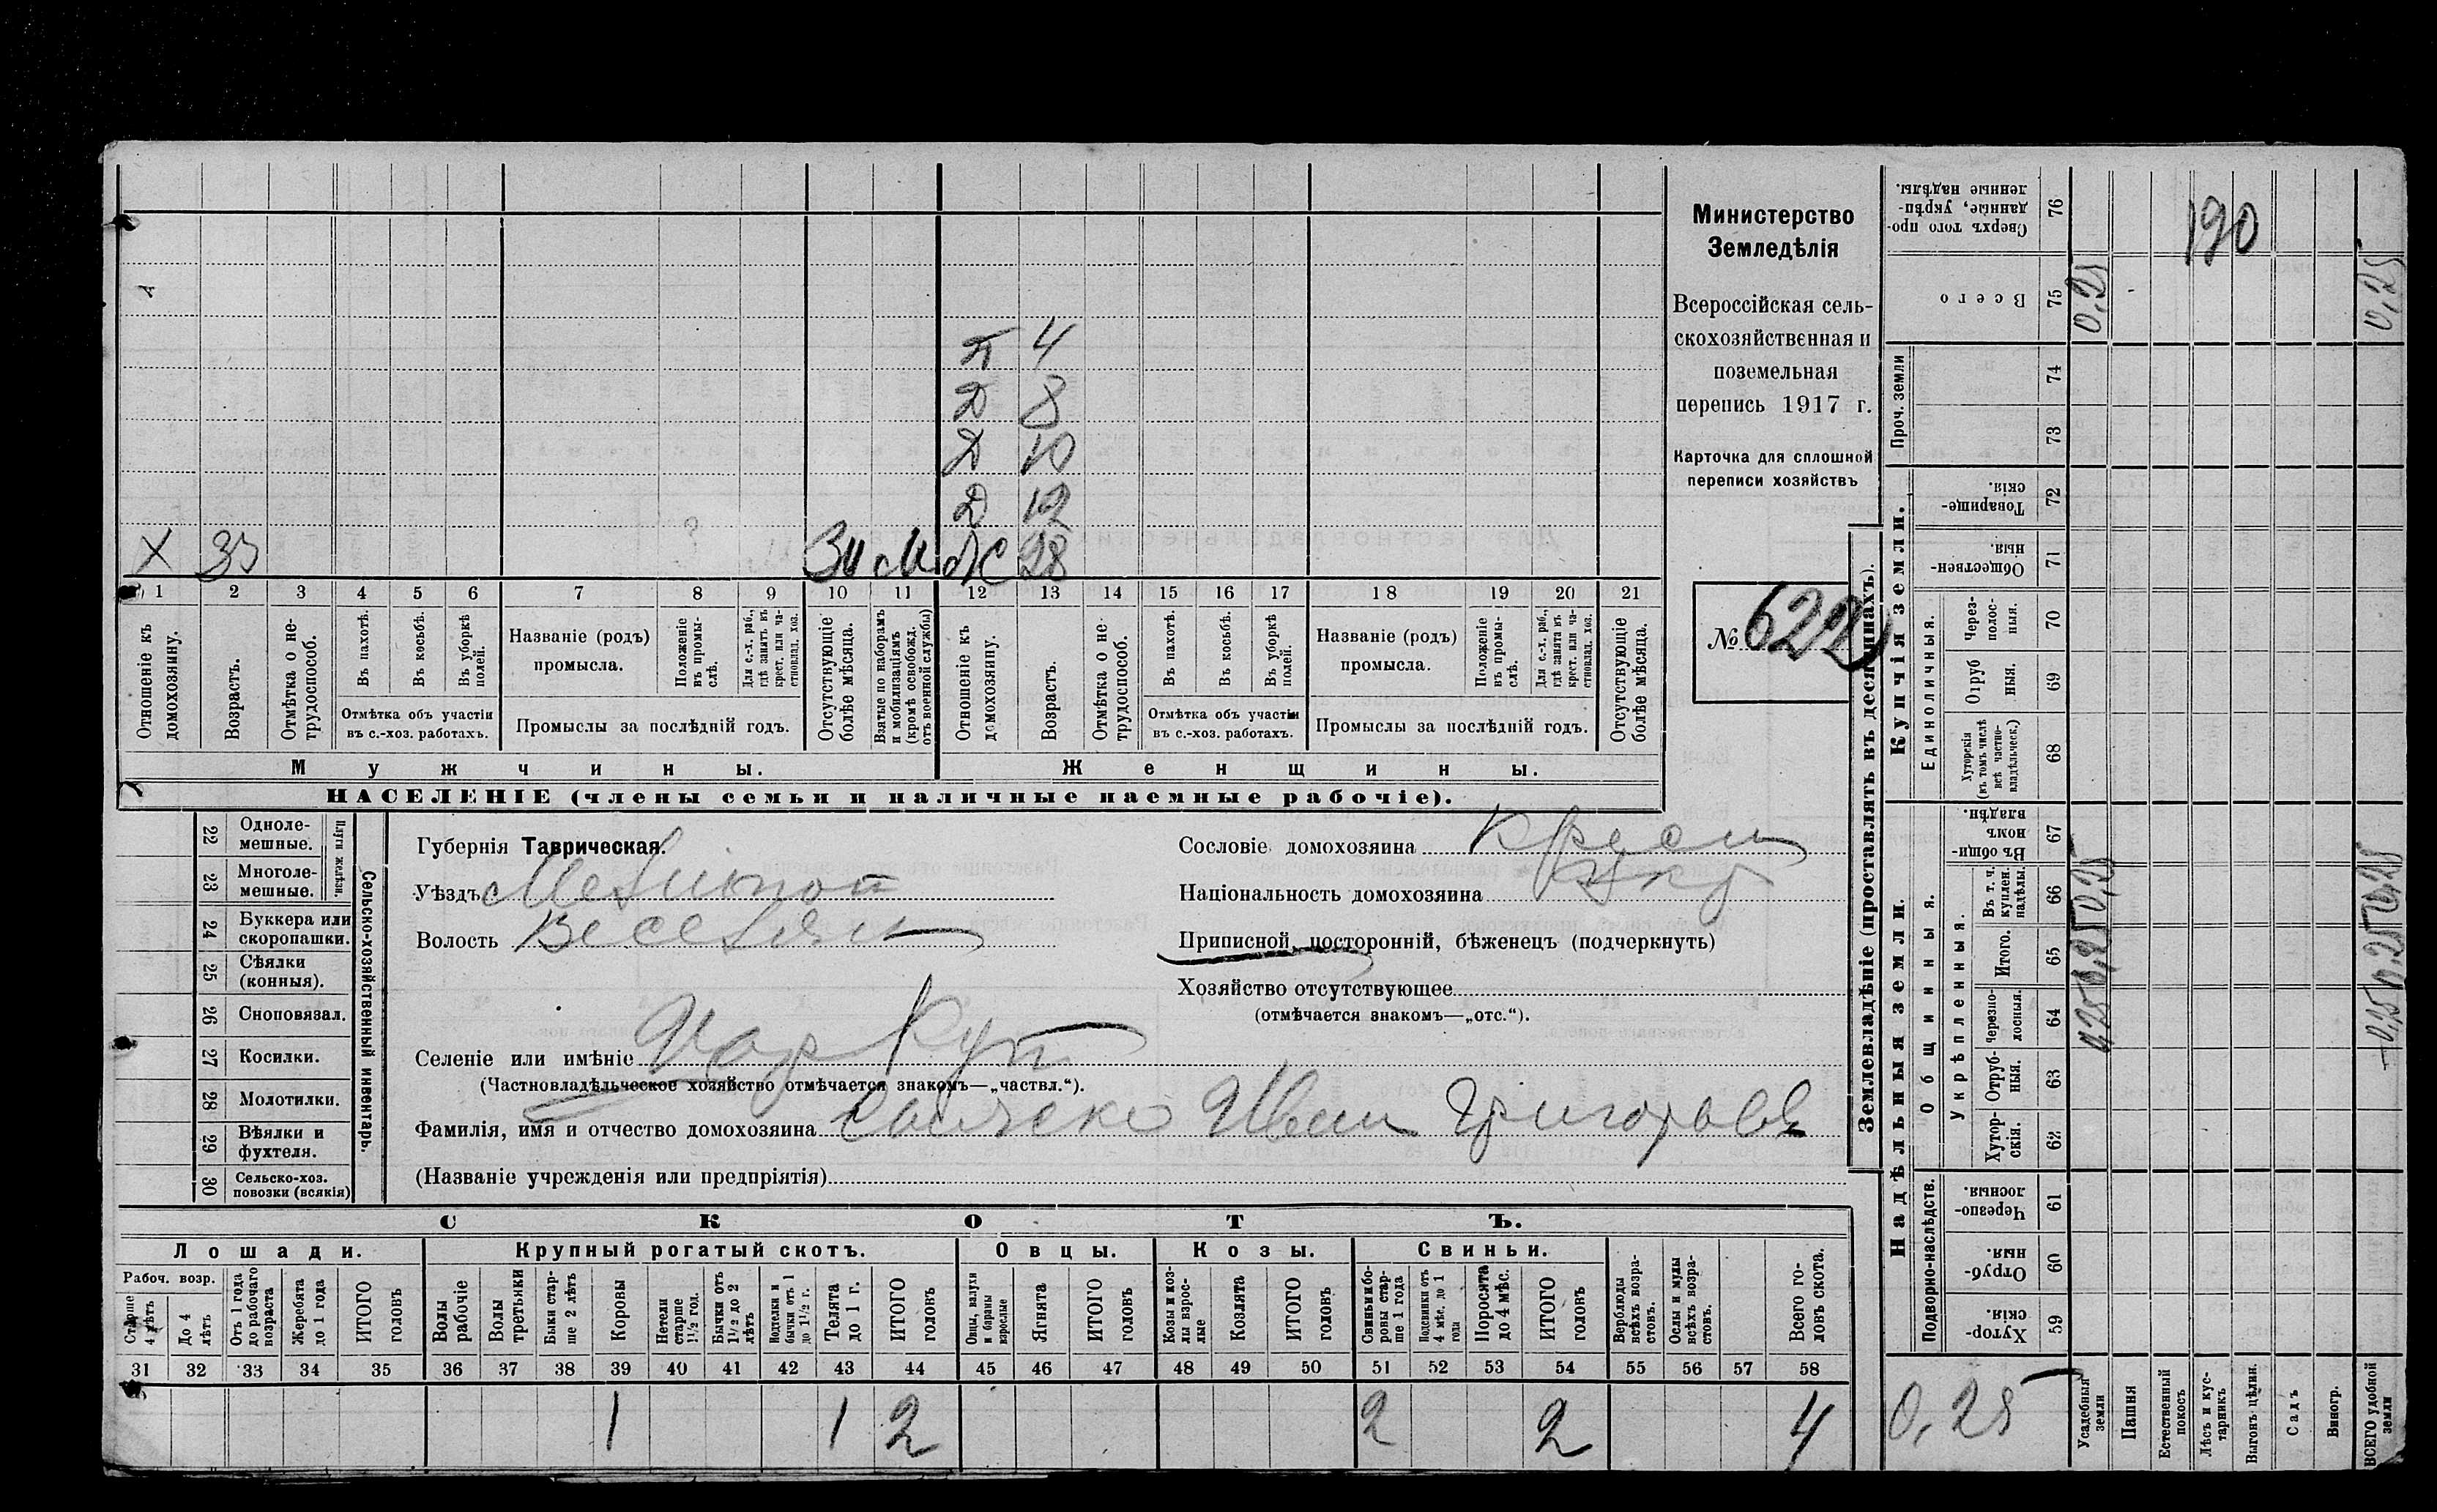 П 4
Д 8
Д 10
Д 12
Х 35 Зи м Ж 28
1 2 3 4 5 6 7 8 9 10 11 12 13 14 15 16 17 18 19 20 21
Отношеніе къ домохозяину.
Возрастъ.
Отмѣтка о не-трудоспособ.
Въ пахотѣ.
Въ косьбѣ.
Въ уборкѣ полей.
Отмѣтка объ участіи
въ с.-хоз. работахъ.
Названіе (родъ)
промысла.
Положеніе въ промы-слѣ.
Для с.-х. раб., гдѣ занятъ въ крест. или ча-стновлад. хоз.
Промыслы за послѣдній годъ.
Отсутствующіе болѣе мѣсяца.
Взятые по наборамъ и мобилизаціямъ (кромѣ освобожд. отъ военной службы)
Отношеніе къ домохозяину.
Возрастъ.
Отмѣтка о не-трудоспособ.
Въ пахотѣ.
Въ косьбѣ.
Въ уборкѣ полей.
Отмѣтка объ участіи
въ с.-хоз. работахъ.
Названіе (родъ)
промысла.
Положеніе въ промы-слѣ.
Для с.-х. раб., гдѣ занята въ крест. или ча-стновлад. хоз.
Промыслы за послѣдній годъ.
Отсутствующіе болѣе мѣсяца.
Мужчины.
Женщины.
НАСЕЛЕНІЕ (члены семьи и наличные наемные рабочіе).
Министерство
Земледѣлія
Всероссійская сель-
скохозяйственная и
поземельная
перепись 1917 г.
Карточка для сплошной
переписи хозяйствъ
№ 622
22 Одноле-мешные.
23 Многоле-мешные.
24 Буккера или скоропашки.
25 Сѣялки (конныя).
26 Сноповязал.
27 Косилки.
28 Молотилки.
29 Вѣялки и фухтеля.
30 Сельско-хоз. повозки (всякія)
Сельско-хозяйственный инвентарь.
Губернія Таврическая.
Уѣздъ Мелитоп
Волость Веселян
Селеніе или имѣніе
(Частновладѣльческое хозяйство отмѣчается знакомъ—„частвл.“).
Фамилія, имя и отчество домохозяина Иван Григорьев
(Названіе учрежденія или предпріятія)
Сословіе домохозяина Крест
Національность домохозяина Укр
Приписной, посторонній, бѣженецъ (подчеркнуть)
Хозяйство отсутствующее
(отмѣчается знакомъ—„отс.“).
СКОТЪ.
Лошади. Крупный рогатый скотъ. Овцы. Козы. Свиньи.
Рабоч. возр.
Старше 4 лѣтъ
До 4 лѣтъ
Отъ 1 года до рабочаго возраста
Жеребята до 1 года
ИТОГО головъ
Волы рабочіе
Волы третьяки
Быки стар-ше 2 лѣтъ
Коровы
Нетели старше 1½ год.
Бычки отъ 1½ до 2 лѣтъ
Подтелки и бычки отъ 1 до 1½ г.
Телята до 1 г.
ИТОГО головъ
Овцы, валухи и бараны взрослые
Ягнята
ИТОГО головъ
Козы и коз-лы взрос-лые
Козлята
ИТОГО головъ
Свиньи и бо-ровы стар-ше 1 года
Подсвинки отъ 4 мѣс. до 1 года
Поросята до 4 мѣс.
ИТОГО головъ
Верблюды всѣхъ возра-стовъ.
Ослы и мулы всѣхъ возра-стовъ.
Всего го-ловъ скота.
31 32 33 34 35 36 37 38 39 40 41 42 43 44 45 46 47 48 49 50 51 52 53 54 55 56 57 58
1 1 2 2 2 4
Землевладѣніе (проставлять въ десятинахъ).
Купчія земли.
Надѣльныя земли.
76 Сверхъ того про-данные, укрѣп-ленные надѣлы. 190
75 Всего 0,25 0,25
Проч. земли
74
73
72 Товарище-скія.
71 Обществен-ныя.
Единоличныя.
70 Через-полос-ныя.
69 Отруб ныя.
68 Хуторскія (въ томъ числѣ всѣ частно-владѣльческ.)
67 Въ общи-номъ владѣн.
Общинныя.
Укрѣпленныя.
66 Въ т. ч. куплен. надѣлы.
65 Итого.
64 Черезпо-лосныя.
63 Отруб-ныя.
62 Хутор-скія.
Подворно-наслѣдств.
61 Черезпо-лосныя.
60 Отруб-ныя.
59 Хутор-скія.
0,25
Усадебныя земли
Пашня
Естественный покосъ
Лѣсъ и кус-тарникъ
Выгонъ цѣлин.
Садъ
Виногр.
ВСЕГО удобной земли